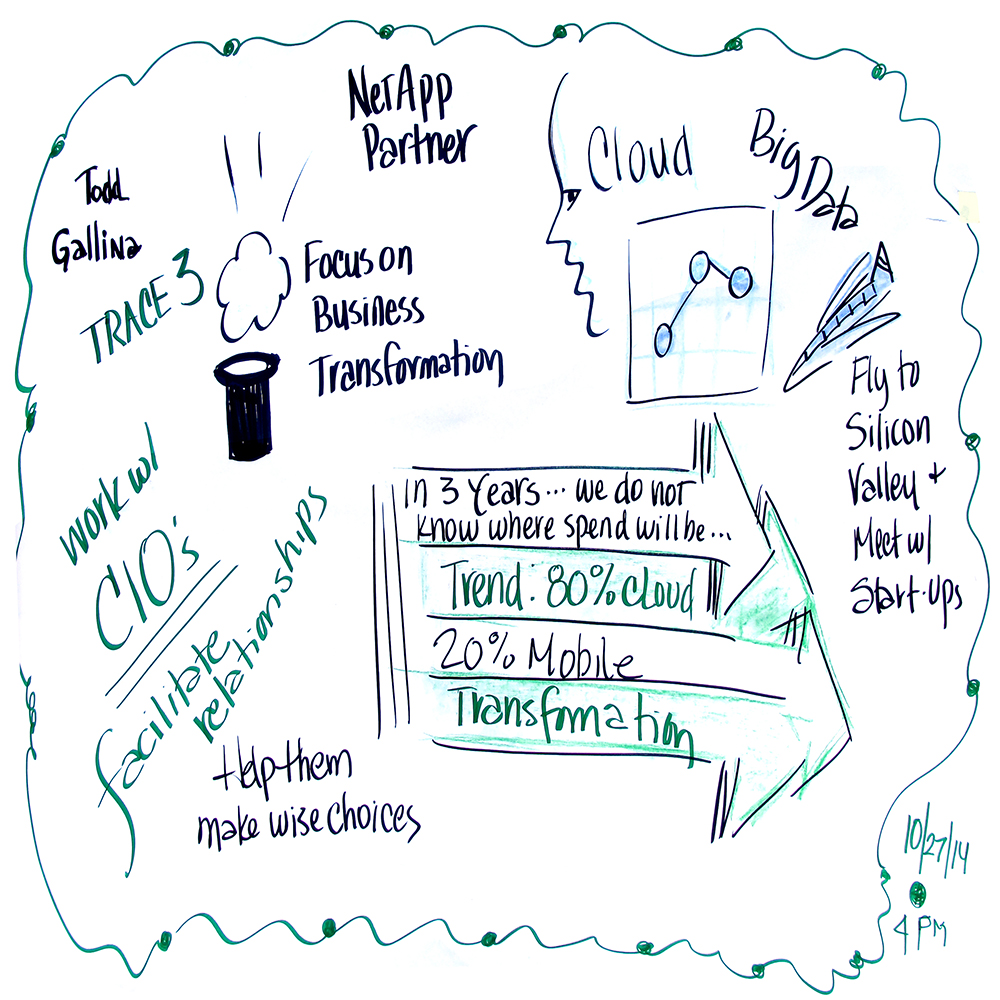 NetApp
Partner
Todd
Gallina
TRACE 3
Focus on
Business
Transformation
Cloud
Big Data
Fly to
Silicon
Valley +
Meet w/
Start-ups
Work w/
CIO's
facilitate
relationships
Help them
make wise choices
In 3 Years... we do not
know where spend will be...
Trend: 80% cloud
20% Mobile
Transfmation
10/27/14
4 PM